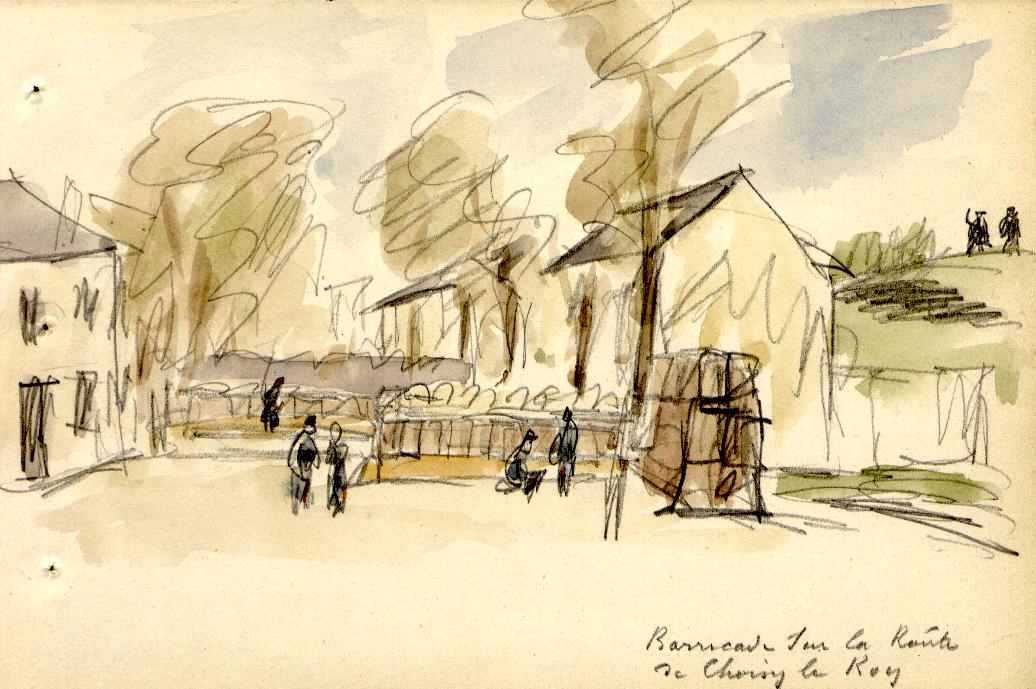 Barricade sur la Route
de Choisy le Roy